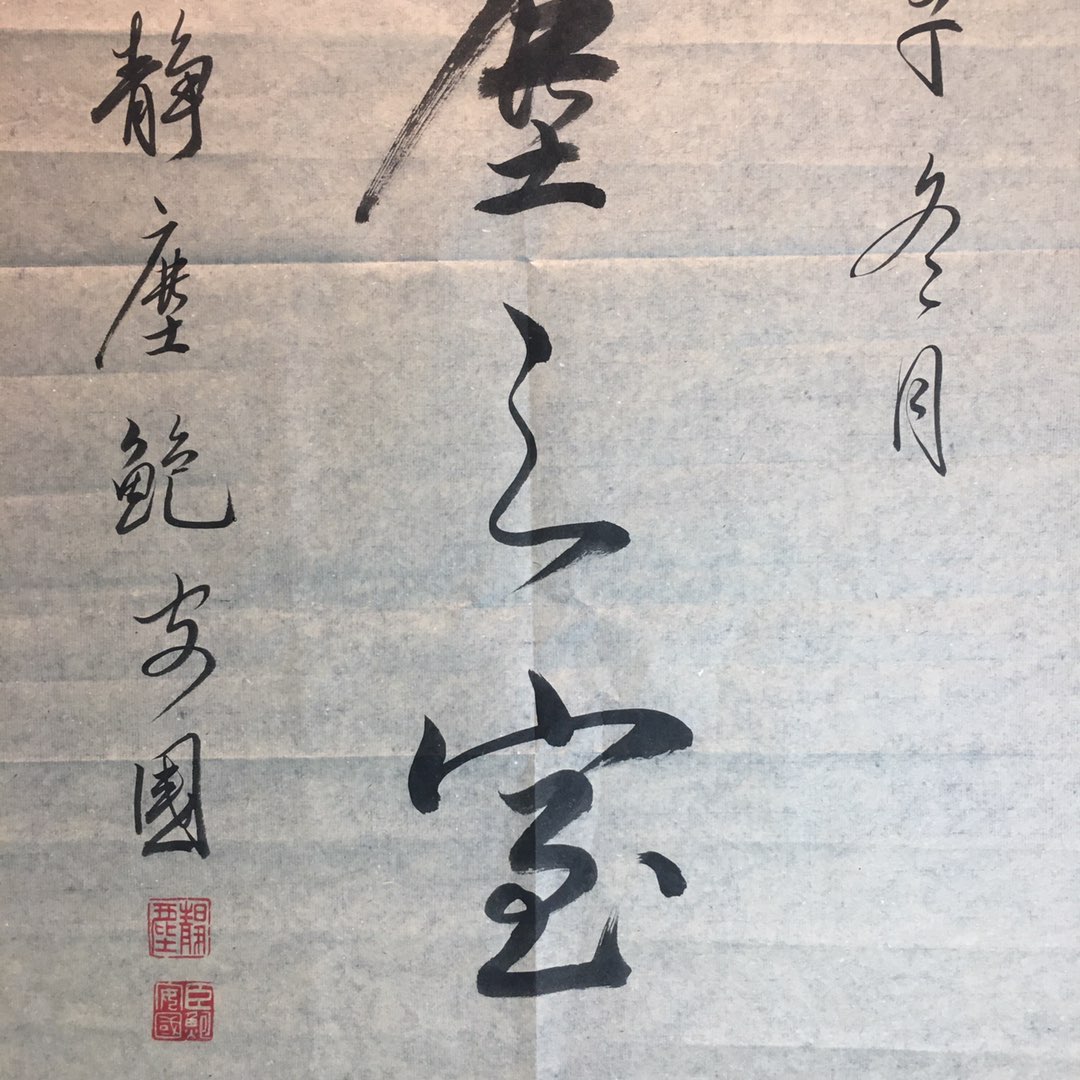 冬月
塵之室
靜塵鮑安國
靜塵
臣鮑安國